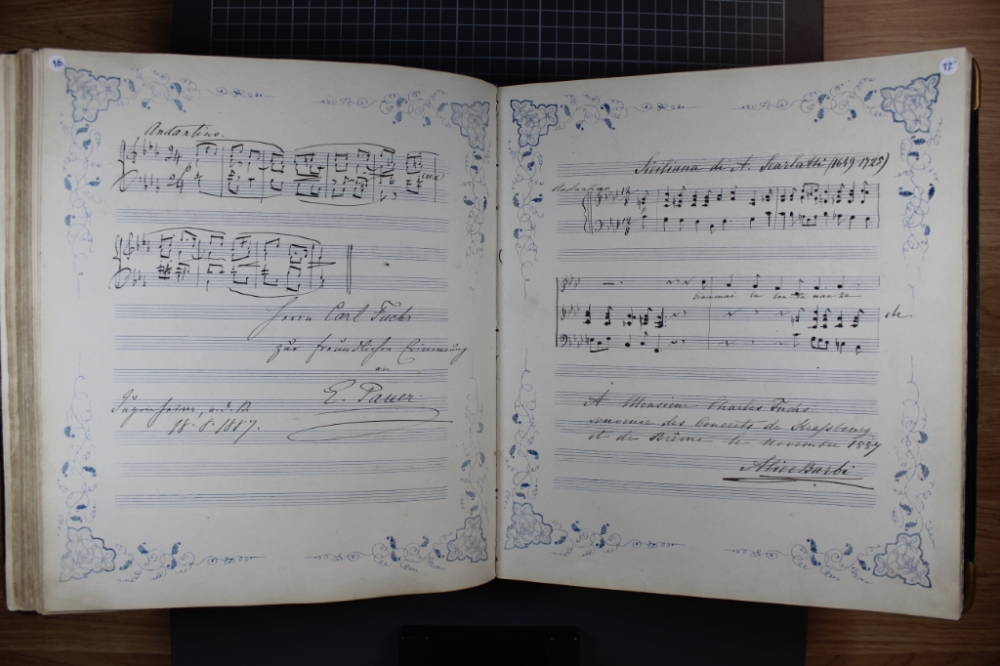 16
Andantino.
24
24
Herrn Carl Fuchs
zur freundlichen Erinnerung
an
E. Pauer.
Jugenheim, a.d.B.
18. 8. 1887.
17
Siciliana de A. Scarlatti (1659 1725)
Andantino
12
8
12
8
A Monsieur Charles Fuchs
souvenir des Concerts de Strassbourg
et de Brême le novembre 1887
Alice Barbi